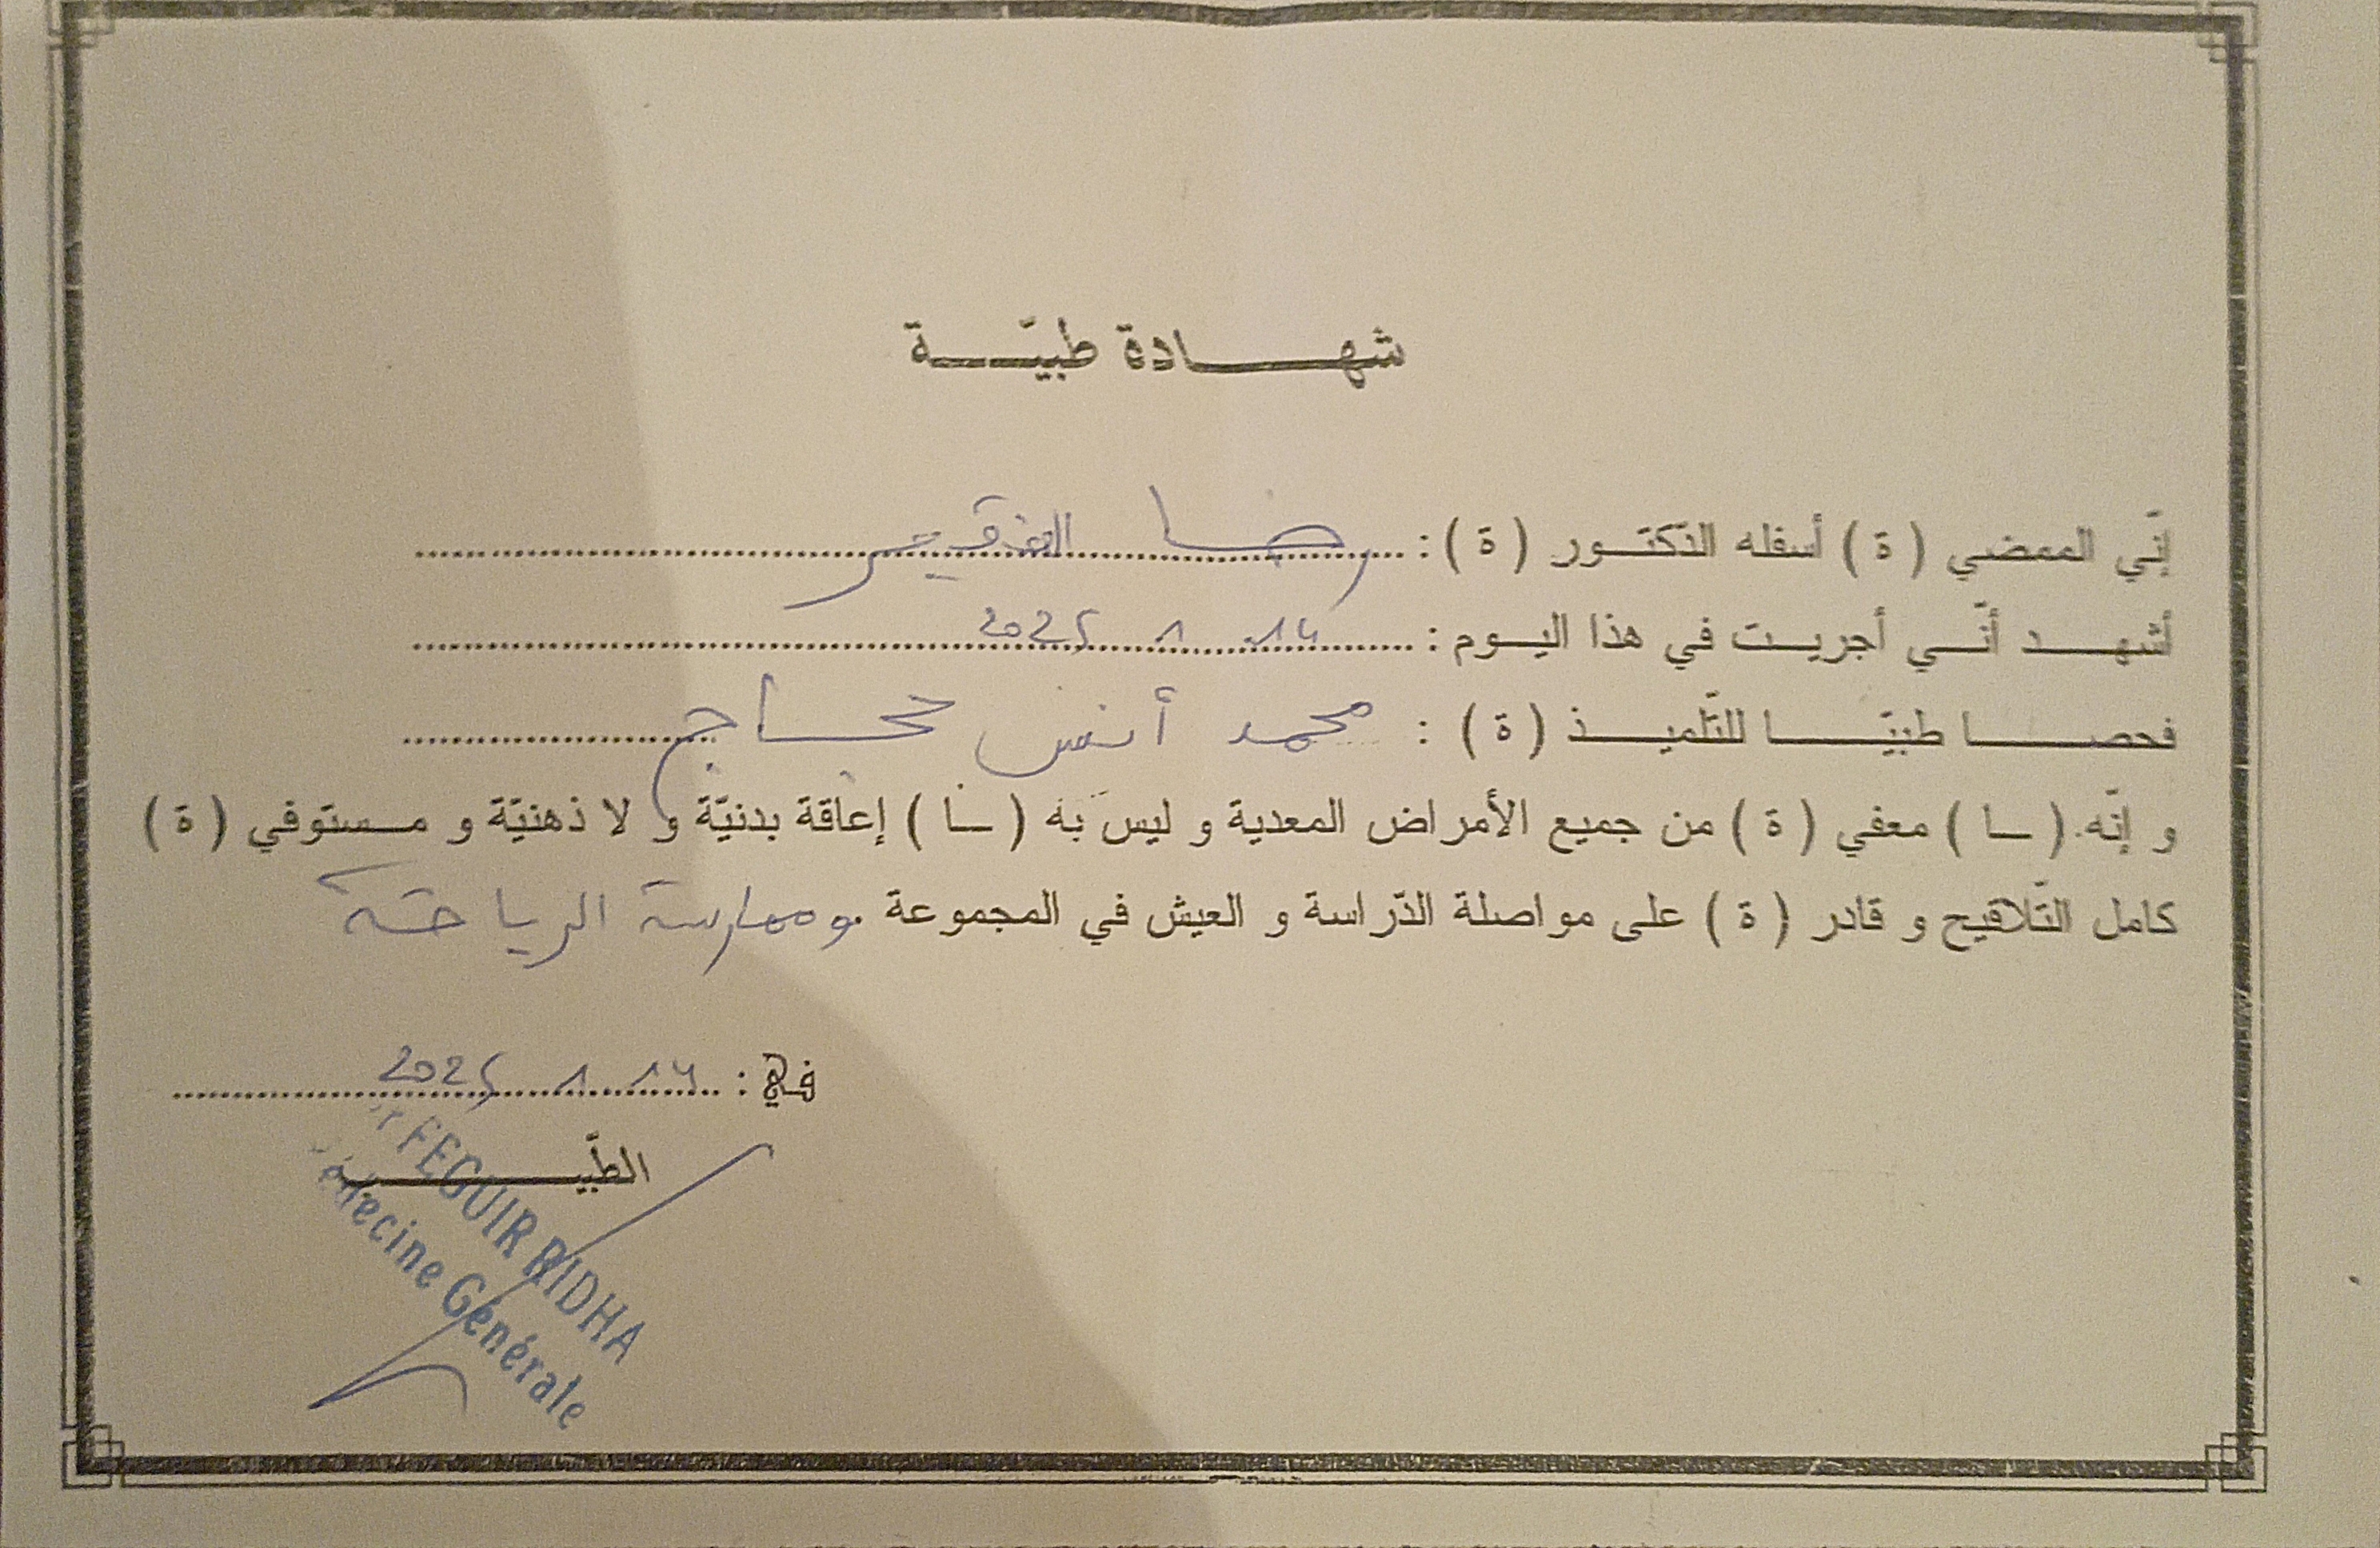 شهادة طبيّة
إنّي الممضي (ة) أسفله الدّكتور (ة) : رضا الفقير
أشهد أنّي أجريت في هذا اليوم : 2025
فحصا طبيّا للتّلميذ (ة) : محمد أنس حجاج
و إنّه (ـا) معفي (ة) من جميع الأمراض المعدية و ليس به (ـا) إعاقة بدنيّة و لا ذهنيّة و مستوفي (ة)
كامل التّلاقيح و قادر (ة) على مواصلة الدّراسة و العيش في المجموعة وممارسة الرياضة
في : 2025
الطّبيب
FEGUIR RIDHA
Médecine Générale